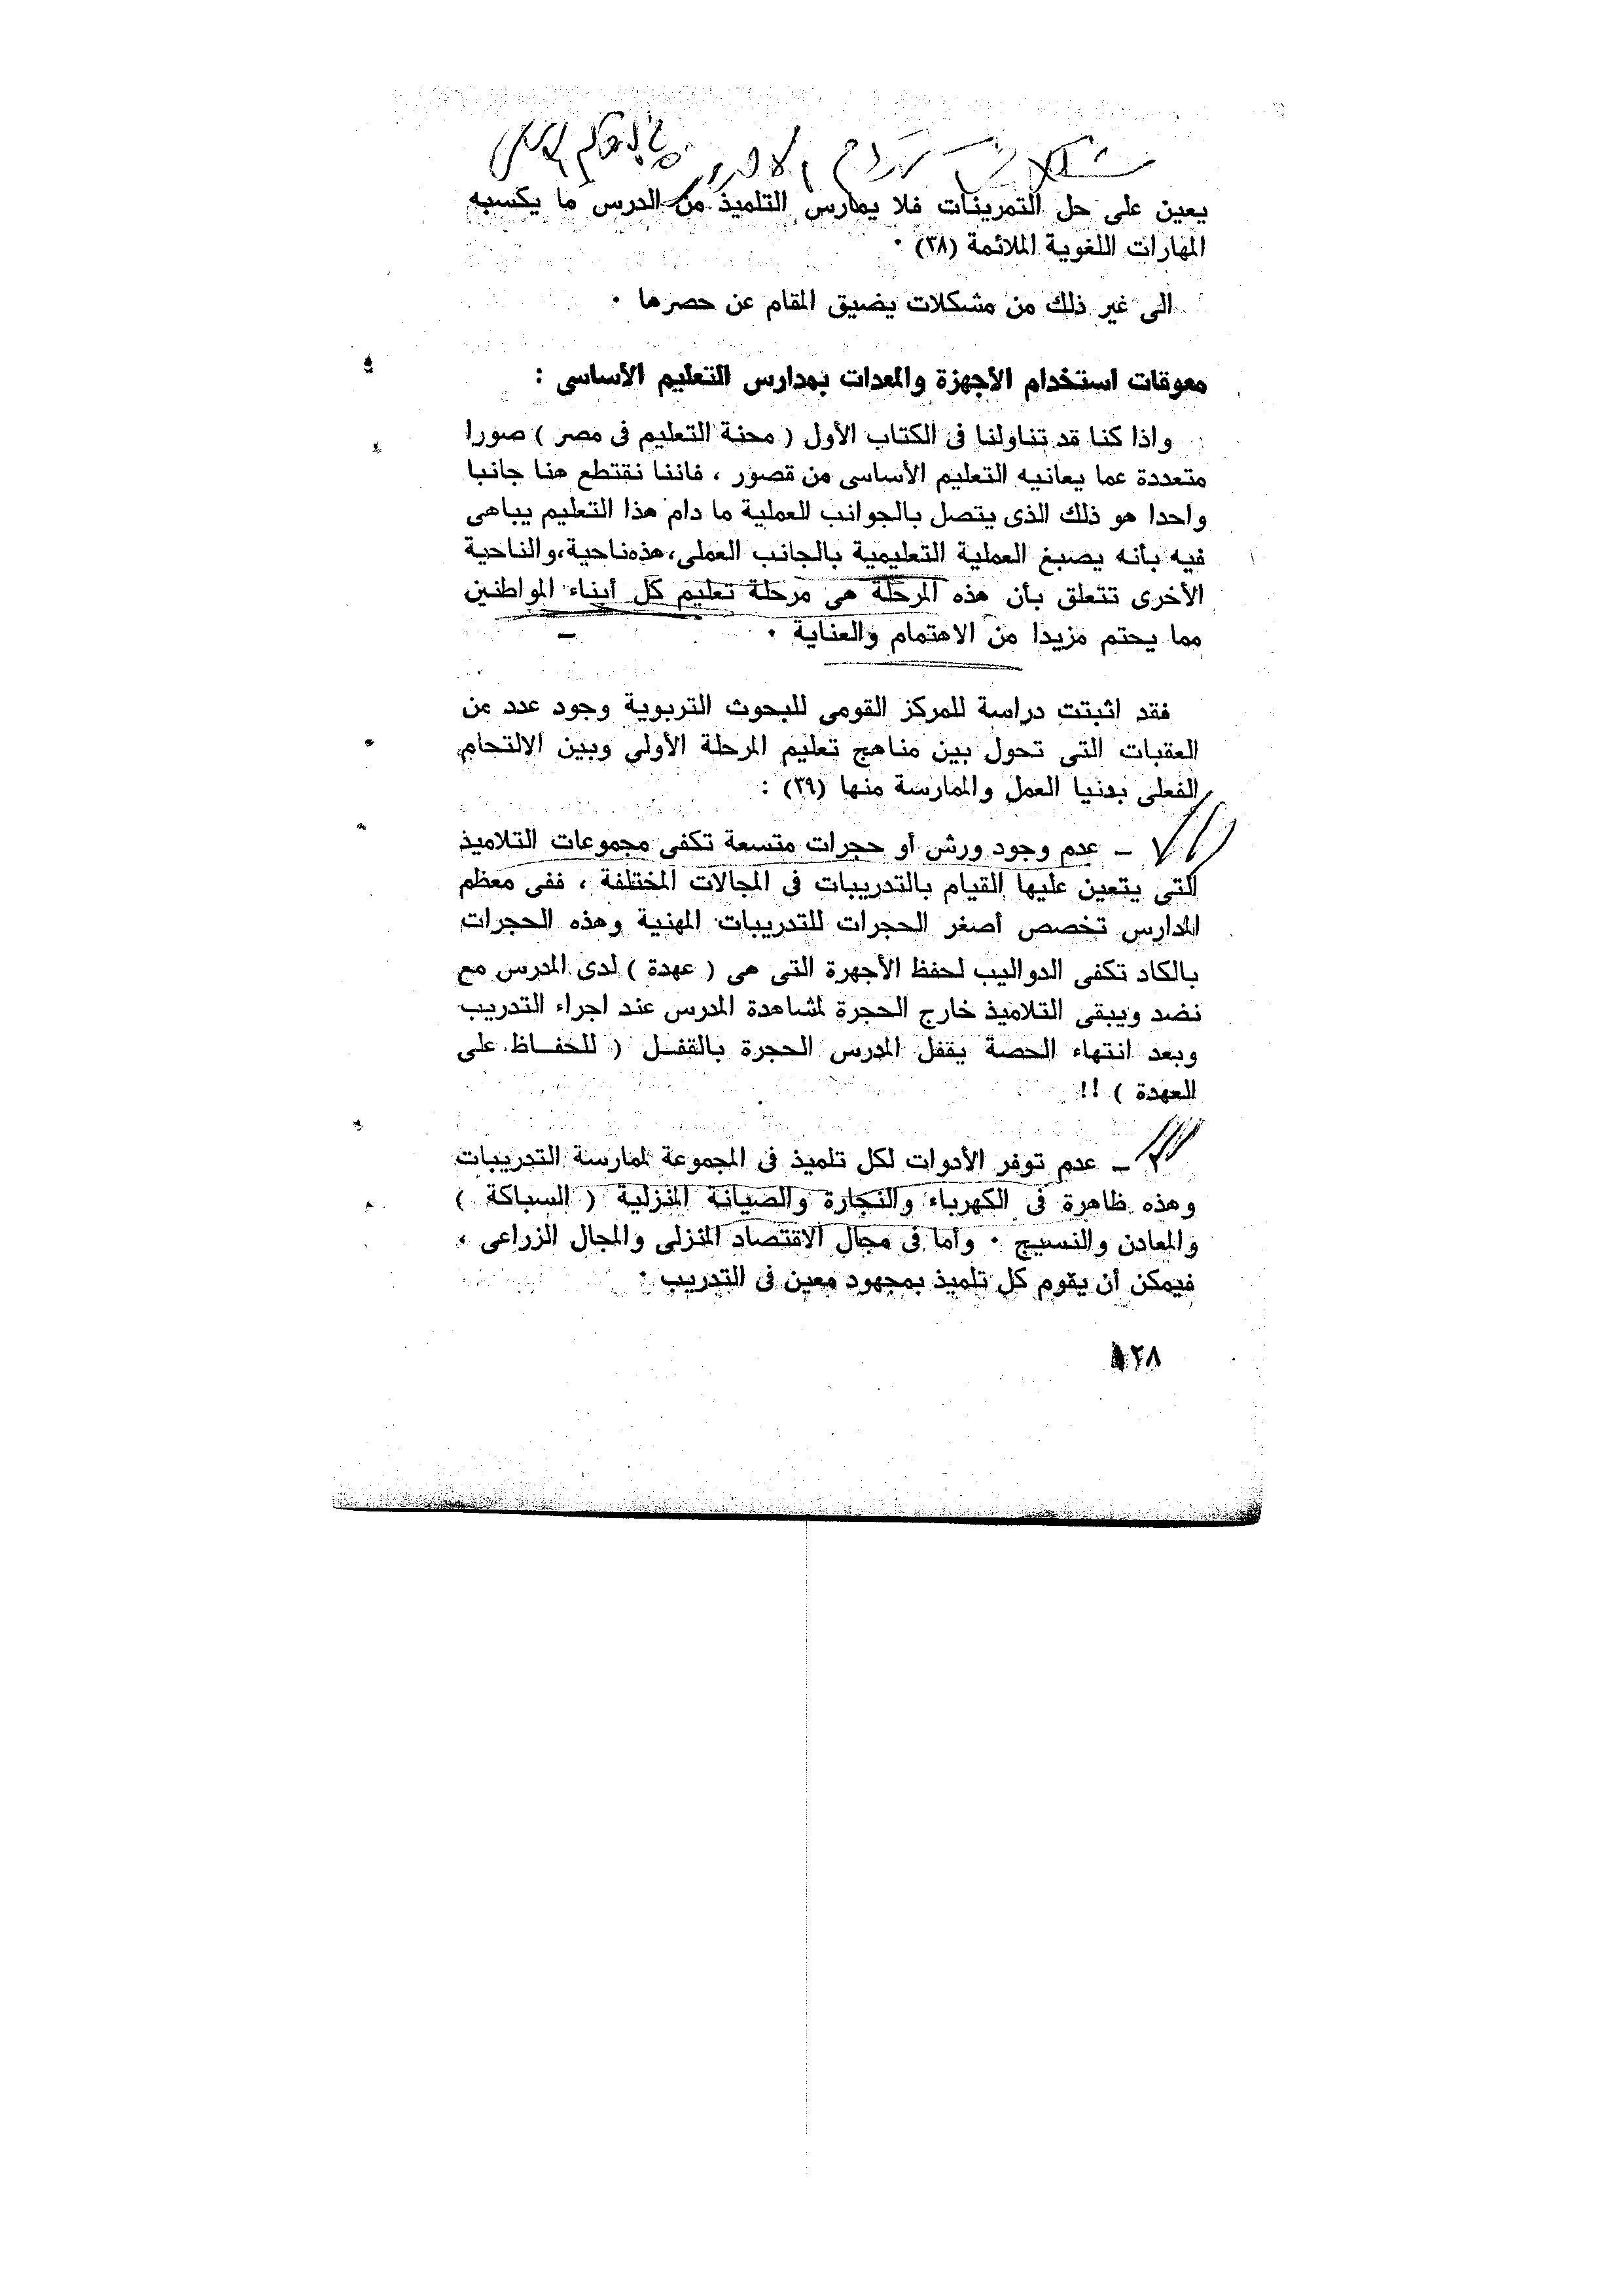 يعين على حل التمرينات فلا يمارس التلميذ من الدرس ما يكسبه
المهارات اللغوية الملائمة (٣٨) ٠
الى غير ذلك من مشكلات يضيق المقام عن حصرها ٠
معوقات استخدام الأجهزة والمعدات بمدارس التعليم الأساسى :
واذا كنا قد تناولنا فى الكتاب الأول ( محنة التعليم فى مصر ) صورا
متعددة عما يعانيه التعليم الأساسى من قصور ، فاننا نقتطع هنا جانبا
واحدا هو ذلك الذى يتصل بالجوانب العملية ما دام هذا التعليم يباهى
فيه بأنه يصبغ العملية التعليمية بالجانب العملى، هذه ناحية، والناحية
الأخرى تتعلق بأن هذه المرحلة هى مرحلة تعليم كل أبناء المواطنين
مما يحتم مزيدا من الاهتمام والعناية ٠
فقد اثبتت دراسة للمركز القومى للبحوث التربوية وجود عدد من
العقبات التى تحول بين مناهج تعليم المرحلة الأولى وبين الالتحام
الفعلى بدنيا العمل والممارسة منها (٣٩) :
١ – عدم وجود ورش أو حجرات متسعة تكفى مجموعات التلاميذ
التى يتعين عليها القيام بالتدريبات فى المجالات المختلفة ، ففى معظم
المدارس تخصص أصغر الحجرات للتدريبات المهنية وهذه الحجرات
بالكاد تكفى الدواليب لحفظ الأجهرة التى هى ( عهدة ) لدى المدرس مع
نضد ويبقى التلاميذ خارج الحجرة لمشاهدة المدرس عند اجراء التدريب
وبعد انتهاء الحصة يقفل المدرس الحجرة بالقفـل ( للحفـاظ على
العهدة ) !!
٢ – عدم توفر الأدوات لكل تلميذ فى المجموعة لممارسة التدريبات
وهذه ظاهرة فى الكهرباء والنجارة والصيانة المنزلية ( السباكة )
والمعادن والنسيج ٠ وأما فى مجال الاقتصاد المنزلى والمجال الزراعى ،
فيمكن أن يقوم كل تلميذ بمجهود معين فى التدريب ٠
١٢٨